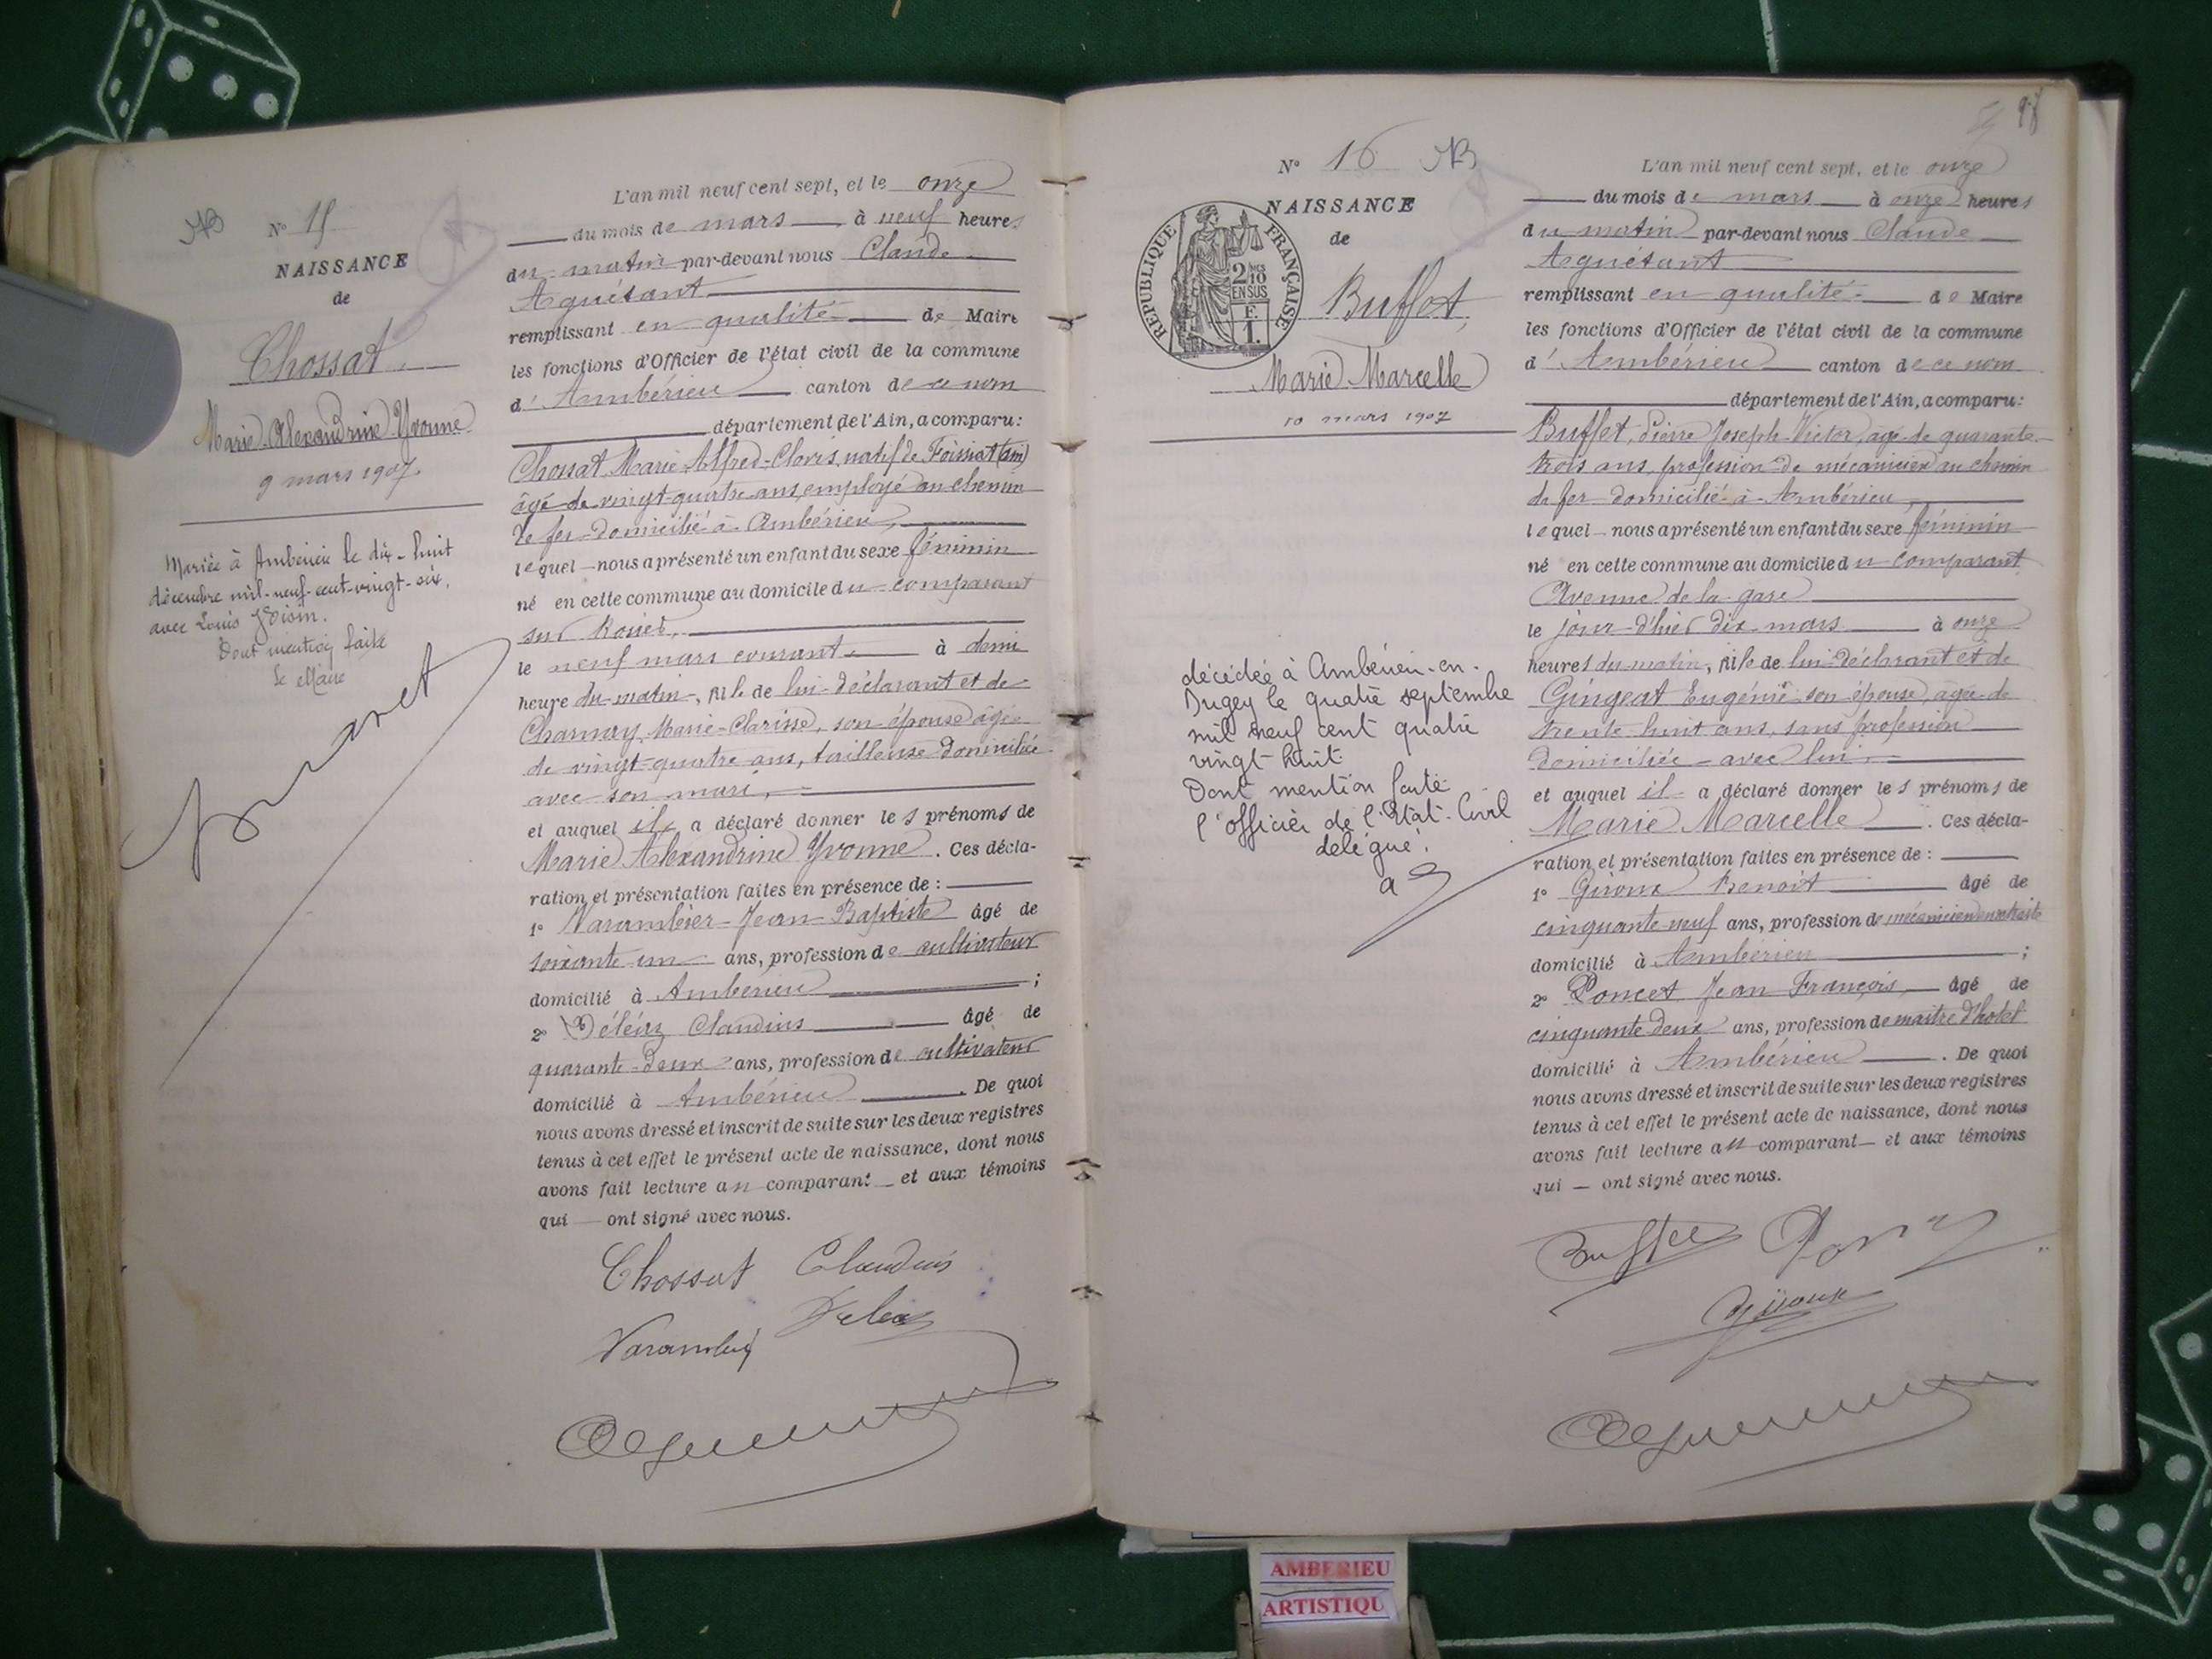 N° 15
NAISSANCE
de
Chossat
Marie Alexandrine Yvonne
9 mars 1907.
Mariée à Ambérieu le dix-huit
décembre mil-neuf-cent-vingt-six.
avec Louis
Dont mention faite
Le Maire
L'an mil neuf cent sept, et le onze
du mois de mars à neuf heures
du matin par-devant nous Claude
Aguétant
remplissant en qualité de Maire
les fonctions d'Officier de l'état civil de la commune
d'Ambérieu canton de ce nom
département de l'Ain, a comparu:
Chossat Marie Alfred-Clovis, natif de Foissiat (Ain)
âgé de vingt-quatre ans, employé au chemin
de fer domicilié à Ambérieu,
lequel nous a présenté un enfant du sexe féminin
né en cette commune au domicile du comparant
sur
le neuf mars courant à demi
heure du matin, fille de lui déclarant et de
Charnay, Marie-Clarisse, son épouse âgée
de vingt-quatre ans, tailleuse domiciliée
avec son mari,
et auquel il a déclaré donner les prénoms de
Marie Alexandrine Yvonne. Ces décla-
ration et présentation faites en présence de :
1° Varambier Jean Baptiste âgé de
soixante un ans, profession de cultivateur
domicilié à Ambérieu ;
2° Déléaz Claudius âgé de
quarante-deux ans, profession de cultivateur
domicilié à Ambérieu. De quoi
nous avons dressé et inscrit de suite sur les deux registres
tenus à cet effet le présent acte de naissance, dont nous
avons fait lecture au comparant et aux témoins
qui ont signé avec nous.
Chossat Claudius
Varambier Déléaz
N° 16
NAISSANCE
de
RÉPUBLIQUE FRANÇAISE
2 MES
10
EN SUS
F.
1.
Buffet,
Marie Marcelle
10 mars 1907
décédée à Ambérieu-en-
Bugey le quatre septembre
mil neuf cent quatre
vingt huit.
Dont mention faite
l'officier de l'Etat-Civil
délégué.
98
L'an mil neuf cent sept, et le onze
du mois de mars à onze heures
du matin par-devant nous Claude
Aguétant
remplissant en qualité de Maire
les fonctions d'Officier de l'état civil de la commune
d'Ambérieu canton de ce nom
département de l'Ain, a comparu:
Buffet, Pierre Joseph Victor, âgé de quarante-
trois ans, profession de mécanicien au chemin
de fer domicilié à Ambérieu,
lequel nous a présenté un enfant du sexe féminin
né en cette commune au domicile du comparant
Avenue de la gare
le jour d'hier dix mars à onze
heures du matin, fille de lui déclarant et de
Gingeat Eugénie son épouse, âgée de
trente huit ans, sans profession
domiciliée avec lui,
et auquel il a déclaré donner les prénoms de
Marie Marcelle. Ces décla-
ration et présentation faites en présence de :
1° Giroux Benoit âgé de
cinquante neuf ans, profession de mécanicien en retraite
domicilié à Ambérieu ;
2° Poncet Jean François âgé de
cinquante deux ans, profession de maitre d'hotel
domicilié à Ambérieu. De quoi
nous avons dressé et inscrit de suite sur les deux registres
tenus à cet effet le présent acte de naissance, dont nous
avons fait lecture au comparant et aux témoins
qui ont signé avec nous.
Buffet
Giroux
AMBERIEU
ARTISTIQU